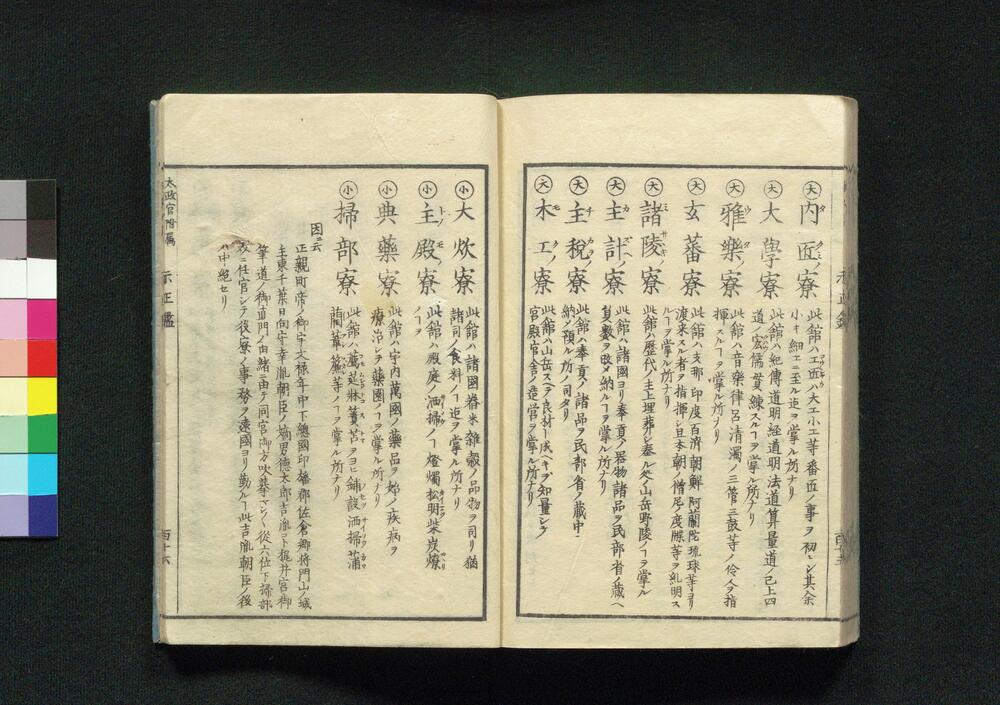 大 内匠寮
此館ハ工匠ハ大工小工等番匠ノ事ヲ初トシ其余
小キ細工ニ至ル迄ヲ掌ル所ナリ
大 大學寮
此館ハ紀傳道明経道明法道算量道ノ已上四
道ノ宏儒貫練スルヿヲ掌ル所ナリ
大 雅樂寮
此館ハ音楽律呂清濁ノ三管三鼓等ノ伶人ヲ指
揮スルヿヲ掌ル所ナリ
大 玄蕃寮
此館ハ支那印度百済朝鮮阿蘭陀琉球等ヨリ
渡来スル者ヲ指揮シ且本朝ノ僧尼ノ度牒等ヲ糺明ス
ルヿヲ掌ル所ナリ
大 諸陵寮
此館ハ歴代ノ主上埋葬シ奉ル処ノ山岳野陵ノヿヲ掌ル
大 主計寮
此館ハ諸國ヨリ奉貢ノ器物諸品ヲ民部省ノ蔵ヘ
員數ヲ改メ納ルヿヲ掌ル所ナリ
大 主税寮
此館ハ奉貢ノ諸品ヲ民部省ノ蔵中ニ
納メ預ル所ノ司タリ
大 木工寮
此館ハ山岳スヘテ良材ト成ヘキヲ知量シテ
官殿官舎ノ造営ヲ掌ル所ナリ
小 大炊寮
此館ハ諸國舂米雑穀ノ品物ヲ司リ猶
諸司ノ食料ノヿ迄ヲ掌ル所ナリ
小 主殿寮
此館ハ殿庭ノ洒掃ノヿ燈燭松明柴炭燎
ノヿヲ
小 典藥寮
此館ハ宇内萬國ノ藥品ヲ始メ疾病ヲ
療治シテ藥園ノヿヲ掌ル所ナリ
小 掃部寮
此館ハ薦莚牀簀苫ヲヨヒ鋪設洒掃蒲
藺葦簾等ノヿヲ掌ル所ナリ
因云
正親町帝ノ御宇大禄年中下總國印旛郡佐倉郷将門山ノ城
主東千葉日向守幸胤朝臣ノ嫡男徳太郎吉胤コト梶井宮御
筆道ノ御直門ノ由緒ニ由テ同宮御方吹挙マシ〱従六位下掃部
ニ任官シテ後寮ノ事務ヲ遠國ヨリ勤ルヿ此吉胤朝臣ノ後
ハ中絶セリ
太政官附属
百十六